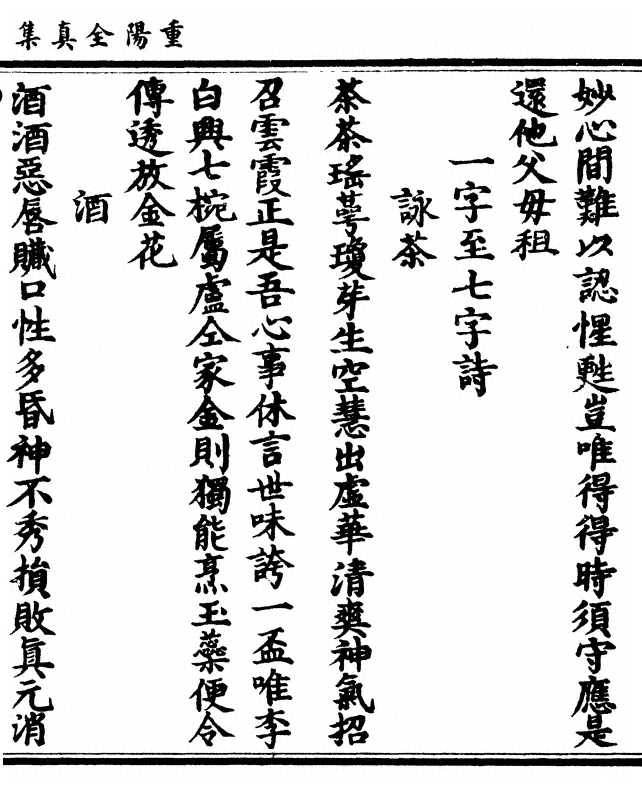 重陽全真集
妙心間難以認惺甦豈唯得得時須守應是
還他父母祖
一字至七字詩
詠茶
茶茶瑤蕚瓊芽生空慧出虛華清爽神氣招
召雲霞正是吾心事休言世味誇一盃唯李
白興七椀屬盧仝家金則獨能烹玉蘂便令
傳透放金花
酒
酒酒惡唇贓口性多昏神不秀損敗眞元消